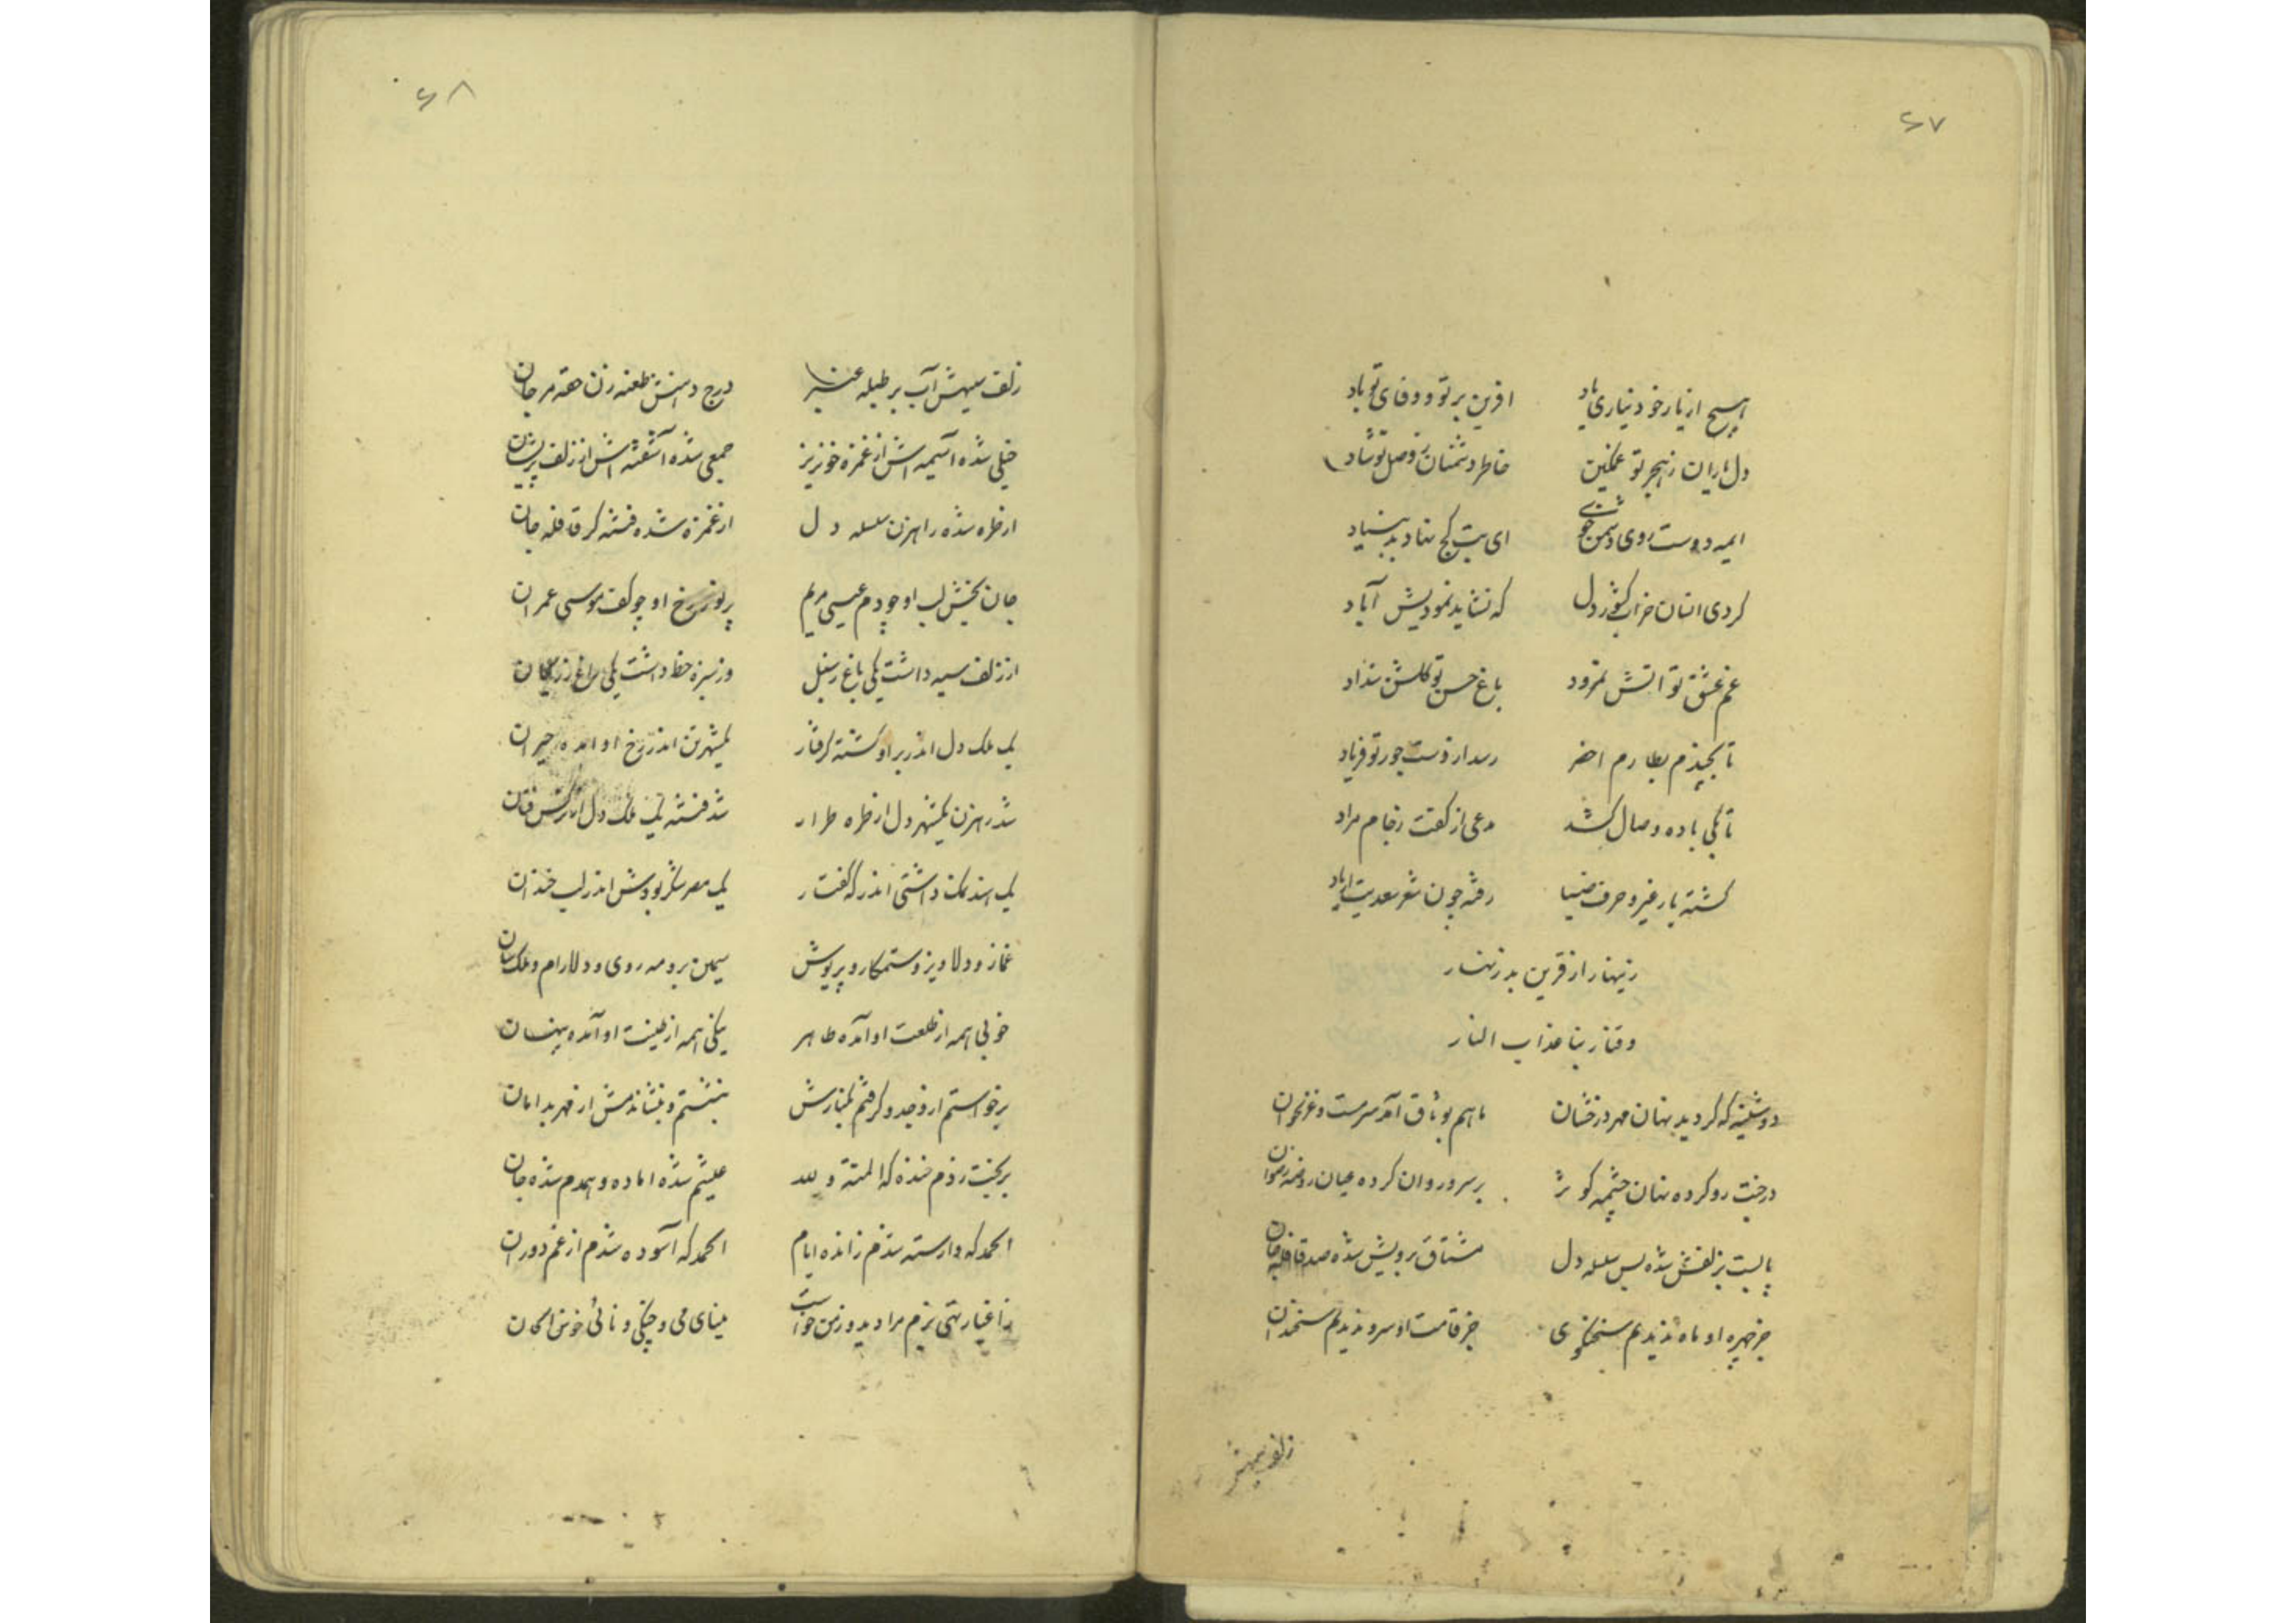 ۶۷
هیچ از یار خود نیاری یاد افرین بر تو و وفای تو باد
دل یاران ز هجر تو غمگین خاطر دشمنان ز وصل تو شاد
ایمه دوست روی دشمن خوی ای بت کج نهاد بد بنیاد
کردی انسان خراب کشور دل که نشاید نمودیش آباد
غم عشق تو اتش نمرود باغ حسن تو گلشن شداد
تا بچند م بطارم اخضر رسد از دست جور تو فریاد
تا بکی باده وصال کشد مدعی از کفت بجام مراد
گشته با رفیر و حرف ضیا رفته چون شعر سعدیت از یاد
زینهار از قرین بد زنهار
وقنا ربنا عذاب النار
دوشینه که گردید نهان مهر درخشان ماهم بوثاق آمد سرمست و غزلخوان
درخت رو کرده نهان چشمه کوثر بر سرو روان کرده عیان روضه رضوان
پابست بزلفش شده بس سلسله دل مشتاق برویش شده صد قافله جان
جز چهره او ماه ندیدم سخنگوی جز قامت او سرو ندیدم سخندان
زلف سیهش
۶۸
زلف سیهش آب بر طبله عنبر درج دهنش طعنه زن حقه مرجان
خیلی شده آسیمه اش از غمزه خونریز جمعی شده آشفته اش از زلف پریشان
از طره شده راهزن سلسله دل از غمزه شده فتنه گر قافله جان
جان بخش لب او چو دم عیسی مریم پرتو رخ او چو کف موسی عمران
از زلف سیه داشت یکی باغ ز سنبل وز سبزه خط داشت یکی راغ ز ریحان
یک ملک دل اندر بر او گشته گرفتار یکشهر تن اندر رخ او امده حیران
شد رهزن یکشهر دل از طره طرار شد فتنه یک ملک دل از نرگس فتان
یک هند نمک داشتی اندر که گفتار یک مصر شکر بودش اندر لب خندان
غماز و دلاویز و ستمکار و پریوش سیمین بر و مه روی و دلارام و ملک سان
خوبی همه از طلعت او آمده ظاهر نیکی همه از طینت او آمده پنهان
برخواستم از وجد و گرفتم بکنارش بنشستم و بنشاندمش از مهر بدامان
بر بخت زدم خنده که المنته و لله عیشم شده اماده و همدم شده جان
الحمد که وارسته شدم ز انده ایام الحمد که آسوده شدم از غم دوران
ز اغیار تهی بزم مرا دید و ز من خواست مینای می و چنگی و نائی خوش الحان